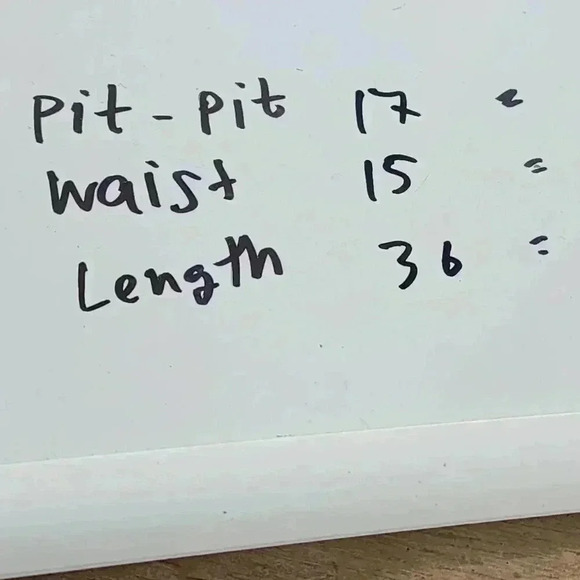 Pit - Pit 17 "
Waist 15 "
Length 36 "